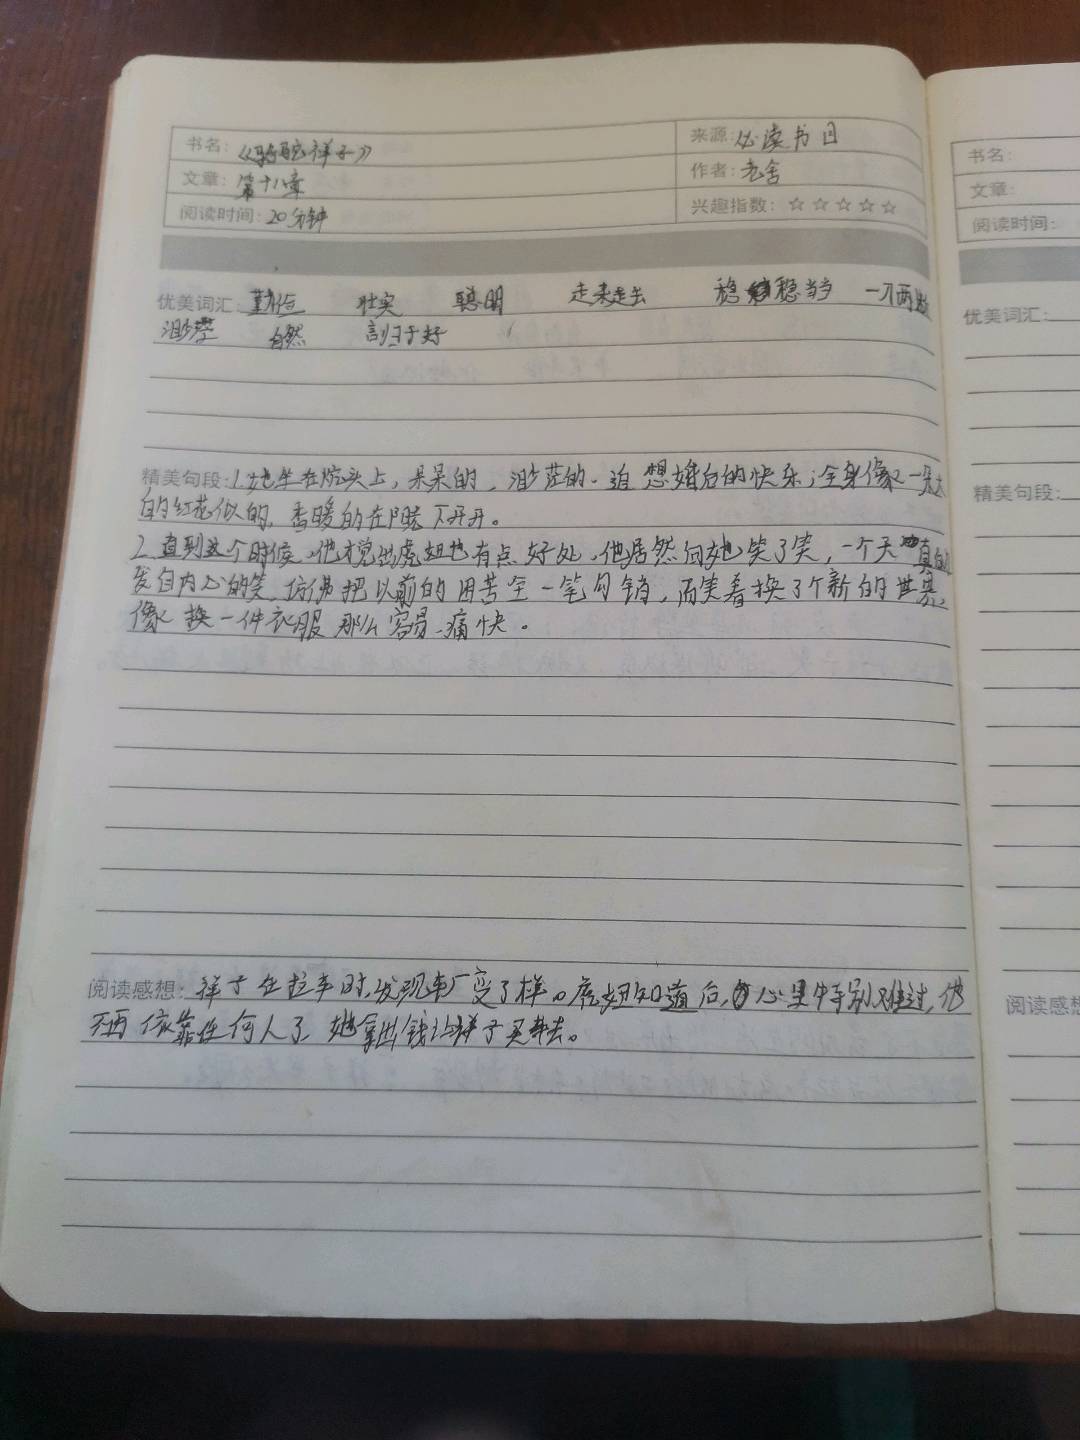 书名：《骆驼祥子》 来源：必读书目
文章：第十八章 作者：老舍
阅读时间：20分钟 兴趣指数：☆☆☆☆☆
优美词汇：勤俭 壮实 聪明 走来走去 稳稳当当 一刀两断
渺茫 自然 言归于好
精美句段：1.她坐在炕头上，呆呆的，渺茫的，追想婚后的快乐；全身像一朵大
的红花似的，香暖的在阳光下开开。
2.直到这个时候，他才觉出虎妞也有点好处，他居然向她笑了笑，一个天真的
发自内心的笑，仿佛把以前的困苦全一笔勾销，而笑着换了个新的世界，
像换一件衣服那么容易、痛快。
阅读感想：祥子在拉车时，发现车厂变了样。虎妞知道后，心里特别难过，她
不再依靠任何人了，她拿出钱让祥子买车去。
书名：
文章：
阅读时间：
优美词汇：
精美句段：
阅读感想